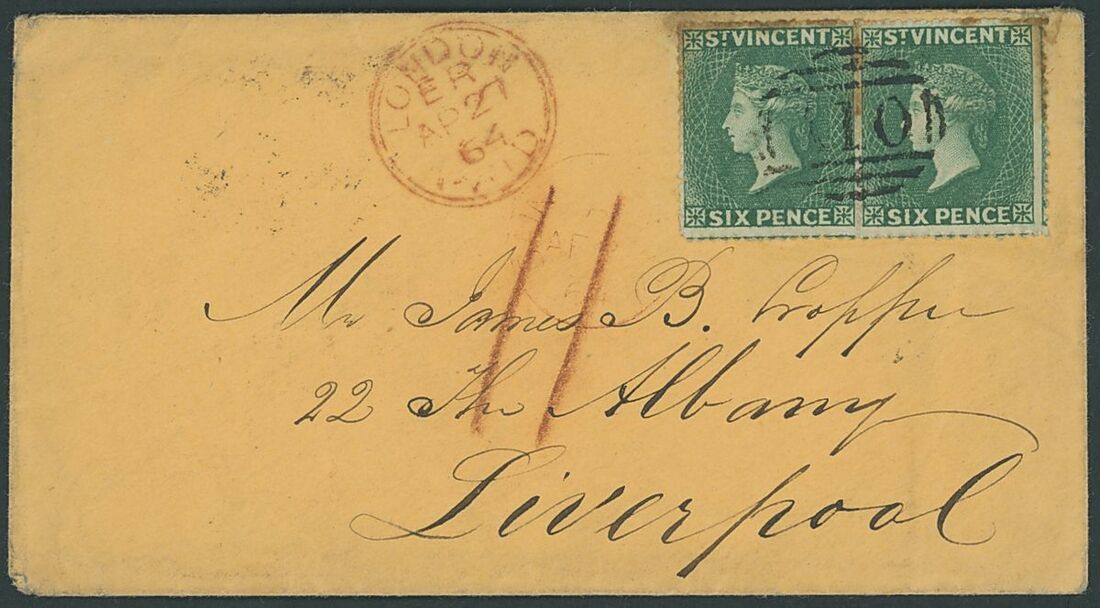 LONDON
ER
AP 27
64
PAID
ST VINCENT ST VINCENT
A10
SIX PENCE SIX PENCE
11
Mr James B. Cropper
22 The Albany
Liverpool